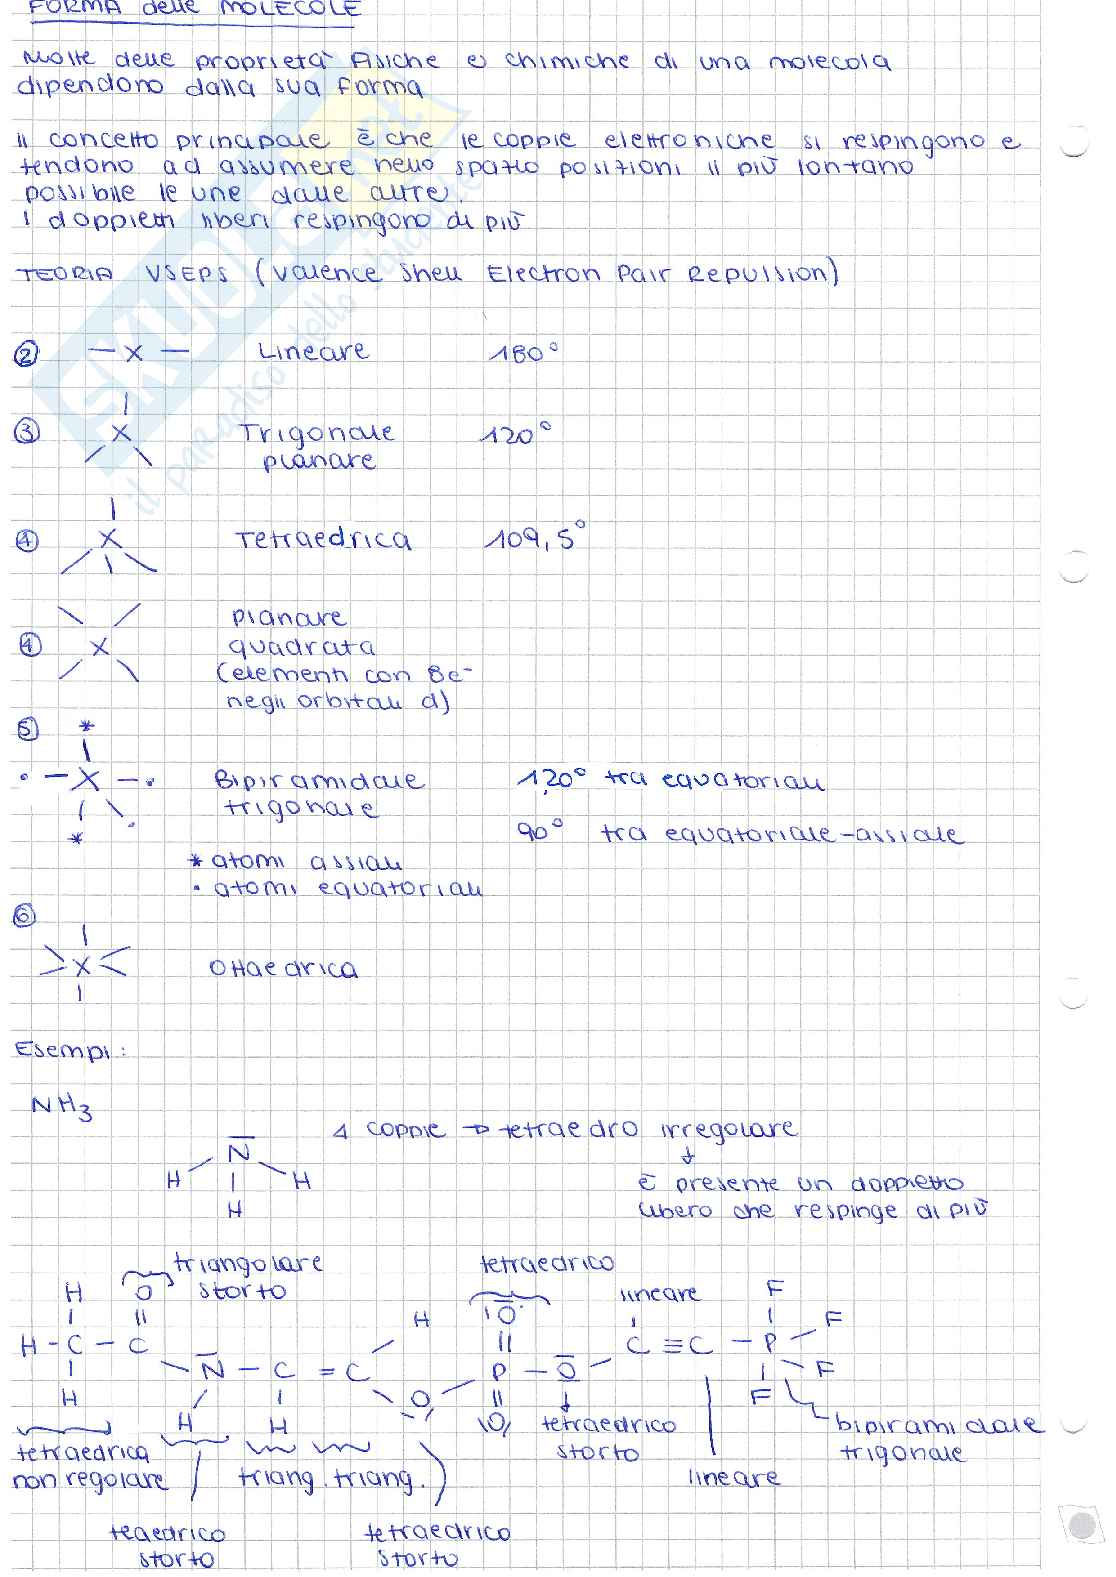 FORMA delle MOLECOLE
Molte delle proprietà fisiche e chimiche di una molecola
dipendono dalla sua forma
Il concetto principale è che le coppie elettroniche si respingono e
tendono ad assumere nello spazio posizioni il più lontano
possibile le une dalle altre.
I doppietti liberi respingono di più
TEORIA VSEPS (Valence Shell Electron Pair Repulsion)
② — X — Lineare 180°
③ X Trigonale 120°
planare
④ X Tetraedrica 109,5°
planare
④ X quadrata
(elementi con 8e-
negli orbitali d)
⑤ *
• — X — • Bipiramidale 120° tra equatoriali
trigonale
* 90° tra equatoriale-assiale
* atomi assiali
• atomi equatoriali
⑥
X Ottaedrica
Esempi:
NH3
4 coppie → tetraedro irregolare
N
H H
H
è presente un doppietto
libero che respinge di più
triangolare storto
tetraedrico
lineare
H O H O F F
H - C - C C ≡ C - P
N - C = C P - O F
H H H O O F
tetraedrica
non regolare
triang. triang.
tetraedrico
storto
lineare
bipiramidale
trigonale
teaedrico
storto
tetraedrico
storto
SKUOLA.net
il paradiso dello studente